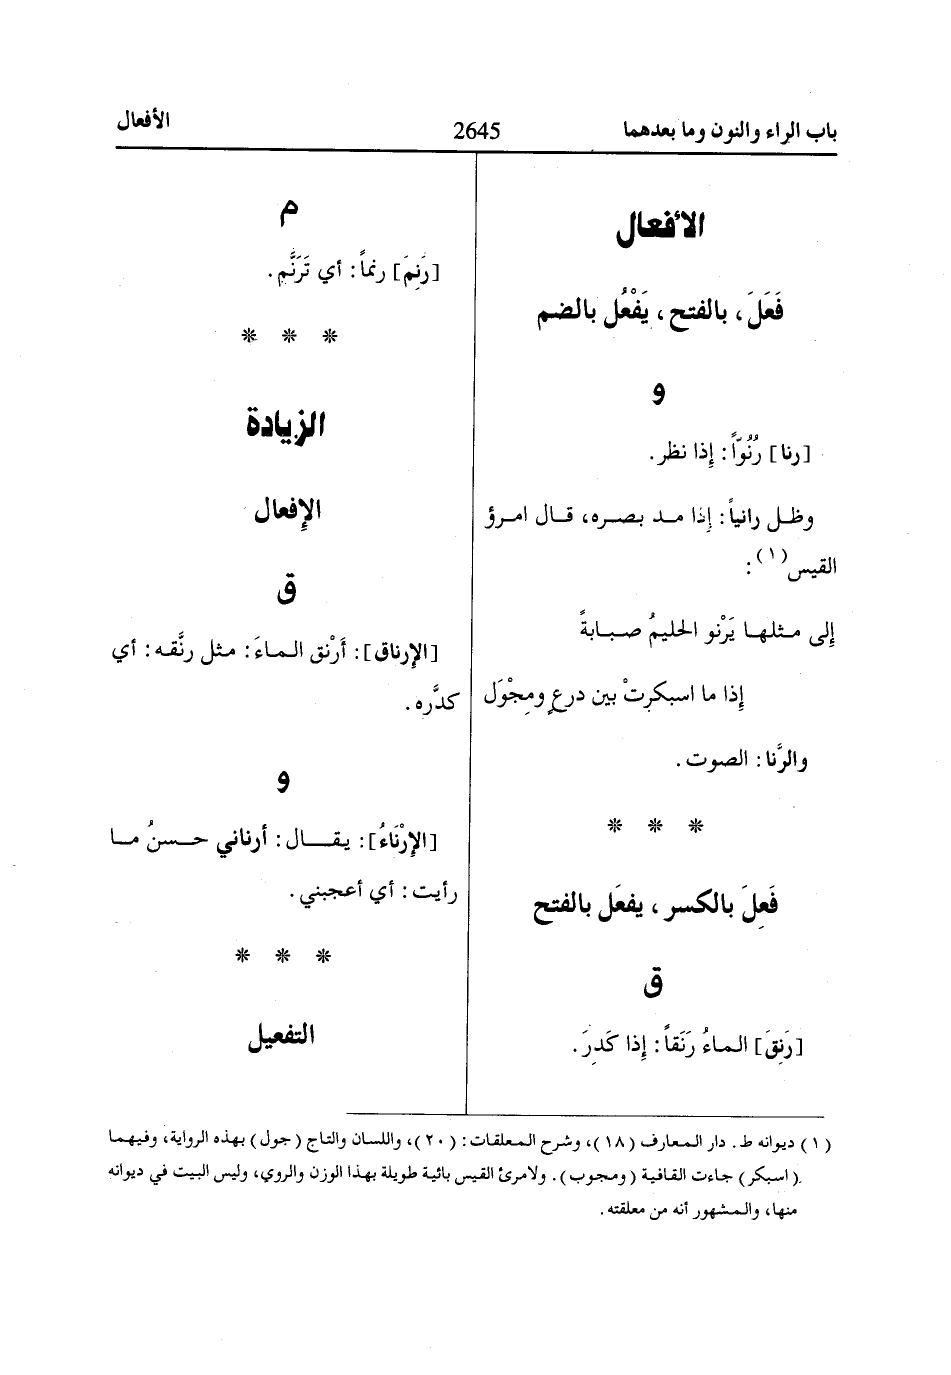 باب الراء والنون وما بعدهما
2645
الأفعال
الأفعال
فَعَلَ، بالفتح، يَفْعُل بالضم
و
[رنا] رُنُوّاً: إذا نظر.
وظل رانياً: إذا مد بصره، قال امرؤ
القيس(١):
إلى مثلها يَرْنو الحليمُ صبابةً
إذا ما اسبكرتْ بين درعٍ ومِجْوَل
والرَّنا: الصوت.
* * *
فَعِلَ بالكسر، يفعَل بالفتح
ق
[رَنِقَ] الماءُ رَنَقاً: إذا كَدِرَ.
م
[رَنِمَ] رنماً: أي تَرَنَّم.
* * *
الزيادة
الإفعال
ق
[الإرناق]: أَرْنق الماءَ: مثل رنَّقه: أي
كدَّره.
و
[الإرْنَاءُ]: يقال: أرناني حسنُ ما
رأيت: أي أعجبني.
* * *
التفعيل
(١) ديوانه ط. دار المعارف (١٨)، وشرح المعلقات: (٢٠)، واللسان والتاج (جول) بهذه الرواية، وفيهما
(اسبكر) جاءت القافية (ومجوب). ولامرئ القيس بائية طويلة بهذا الوزن والروي، وليس البيت في ديوانه
منها، والمشهور أنه من معلقته.